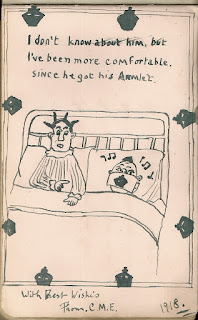 I don't know about him, but
I've been more comfortable.
SINCE he got his Armlet.
With Best Wishis
From. C.M.E.
1918.